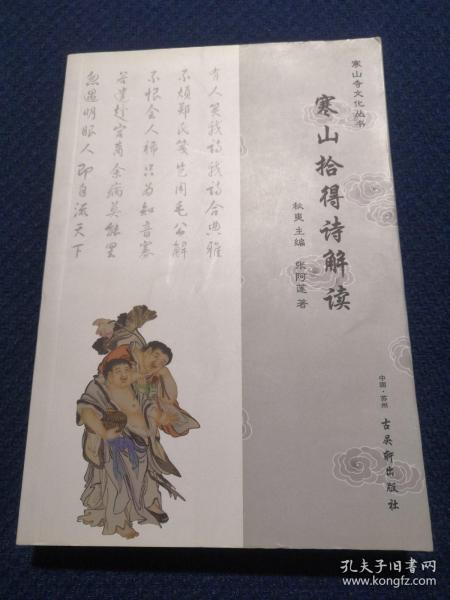 寒山寺文化丛书
寒山拾得诗解读
秋爽 主编 张阿莲 著
中国·苏州
古吴轩出版社
有人笑我诗我诗合典雅
不烦郑氏笺岂用毛公解
不恨会人稀只为知音寡
若遣趁宫商余病莫能罢
忽遇明眼人即自流天下
孔夫子旧书网
www.kongfz.com